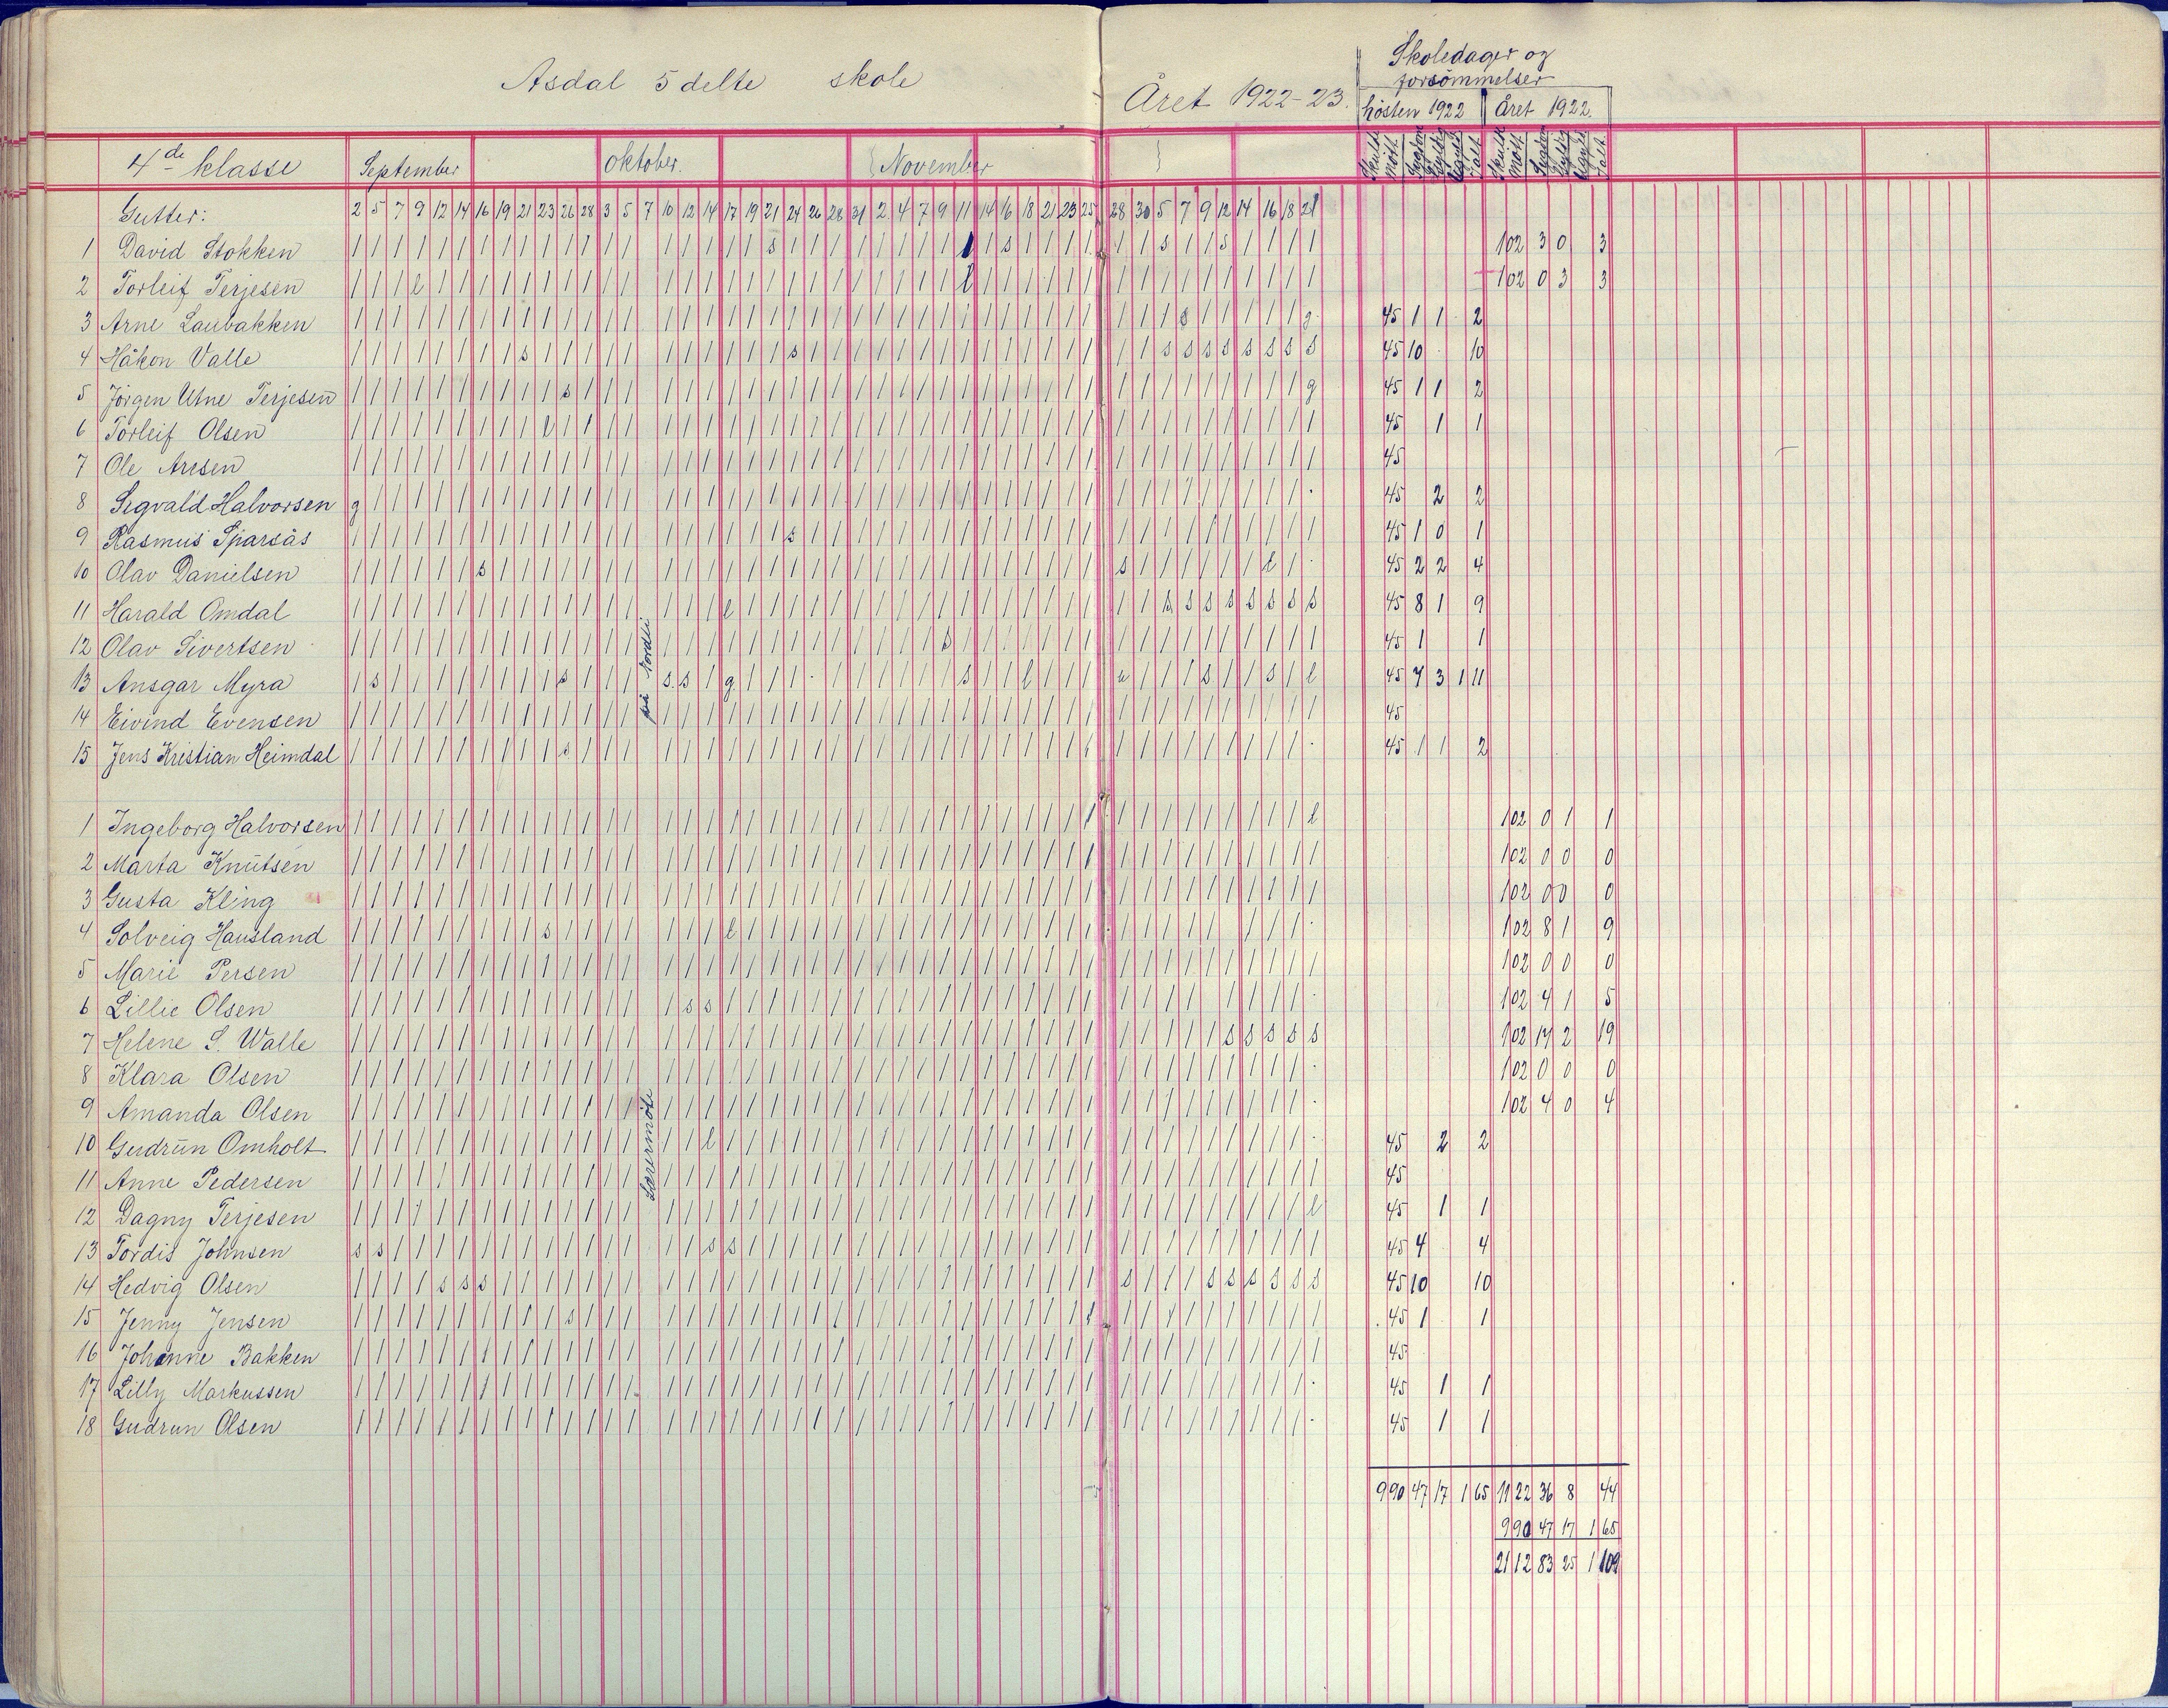 Asdal 5 delte skole
Året 1922-23.
Skoledager og
forsömmelser
hösten 1922 Året 1922.
4de klasse September Oktober. November
Skulde møtt Sygdom Gyldig Ugyld Ialt. Skulde møtt Sygdom Gyldig Ugyld Ialt.
Gutter: 2 5 7 9 12 14 16 19 21 23 26 28 3 5 7 10 12 14 17 19 21 24 26 28 31 2 4 7 9 11 14 16 18 21 23 25 28 30 5 7 9 12 14 16 18 21
1 David Stokken 102 3 0 3
2 Torleif Terjesen 102 0 3 3
3 Arne Laubakken 45 1 1 2
4 Håkon Valle 45 10 10
5 Jörgen Utne Terjesen 45 1 1 2
6 Torleif Olsen 45 1 1
7 Ole Arisen 45
8 Sigvald Halvorsen 45 2 2
9 Rasmus Sparsås 45 1 0 1
10 Olav Danielsen 45 2 2 4
11 Harald Omdal 45 8 1 9
12 Olav Sivertsen 45 1 1
13 Ansgar Myra 45 7 3 1 11
14 Eivind Evensen 45
15 Jens Kristian Heimdal 45 1 1 2
på Nordli
1 Ingeborg Halvorsen 102 0 1 1
2 Marta Knutsen 102 0 0 0
3 Gusta Kling 102 0 0 0
4 Solveig Hausland 102 8 1 9
5 Marie Persen 102 0 0 0
6 Lillie Olsen 102 4 1 5
7 Helene S. Walle 102 17 2 19
8 Klara Olsen 102 0 0 0
9 Amanda Olsen 102 4 0 4
10 Gudrun Omholt 45 2 2
11 Anne Pedersen 45
12 Dagny Terjesen 45 1 1
13 Tordis Johnsen 45 4 4
14 Hedvig Olsen 45 10 10
15 Jenny Jensen 45 1 1
16 Johanne Bakken 45
17 Lilly Markussen 45 1 1
18 Gudrun Olsen 45 1 1
Lærermöte
990 47 17 1 65 1122 36 8 44
990 47 17 1 65
2112 83 25 1 109